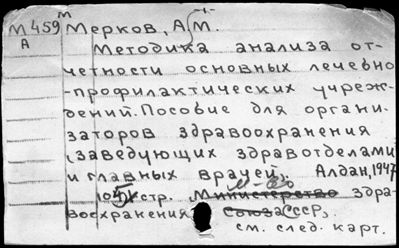 М459 Мерков, А.М.
А Методика анализа от-
четности основных лечебно
-профилактических учреж-
дений. Пособие для органи-
заторов здравоохранения
(заведующих здравотделами
и главных врачей). Алдан, 1947
105 стр. М-во здра-
воохранения СССР,
см. след. карт.